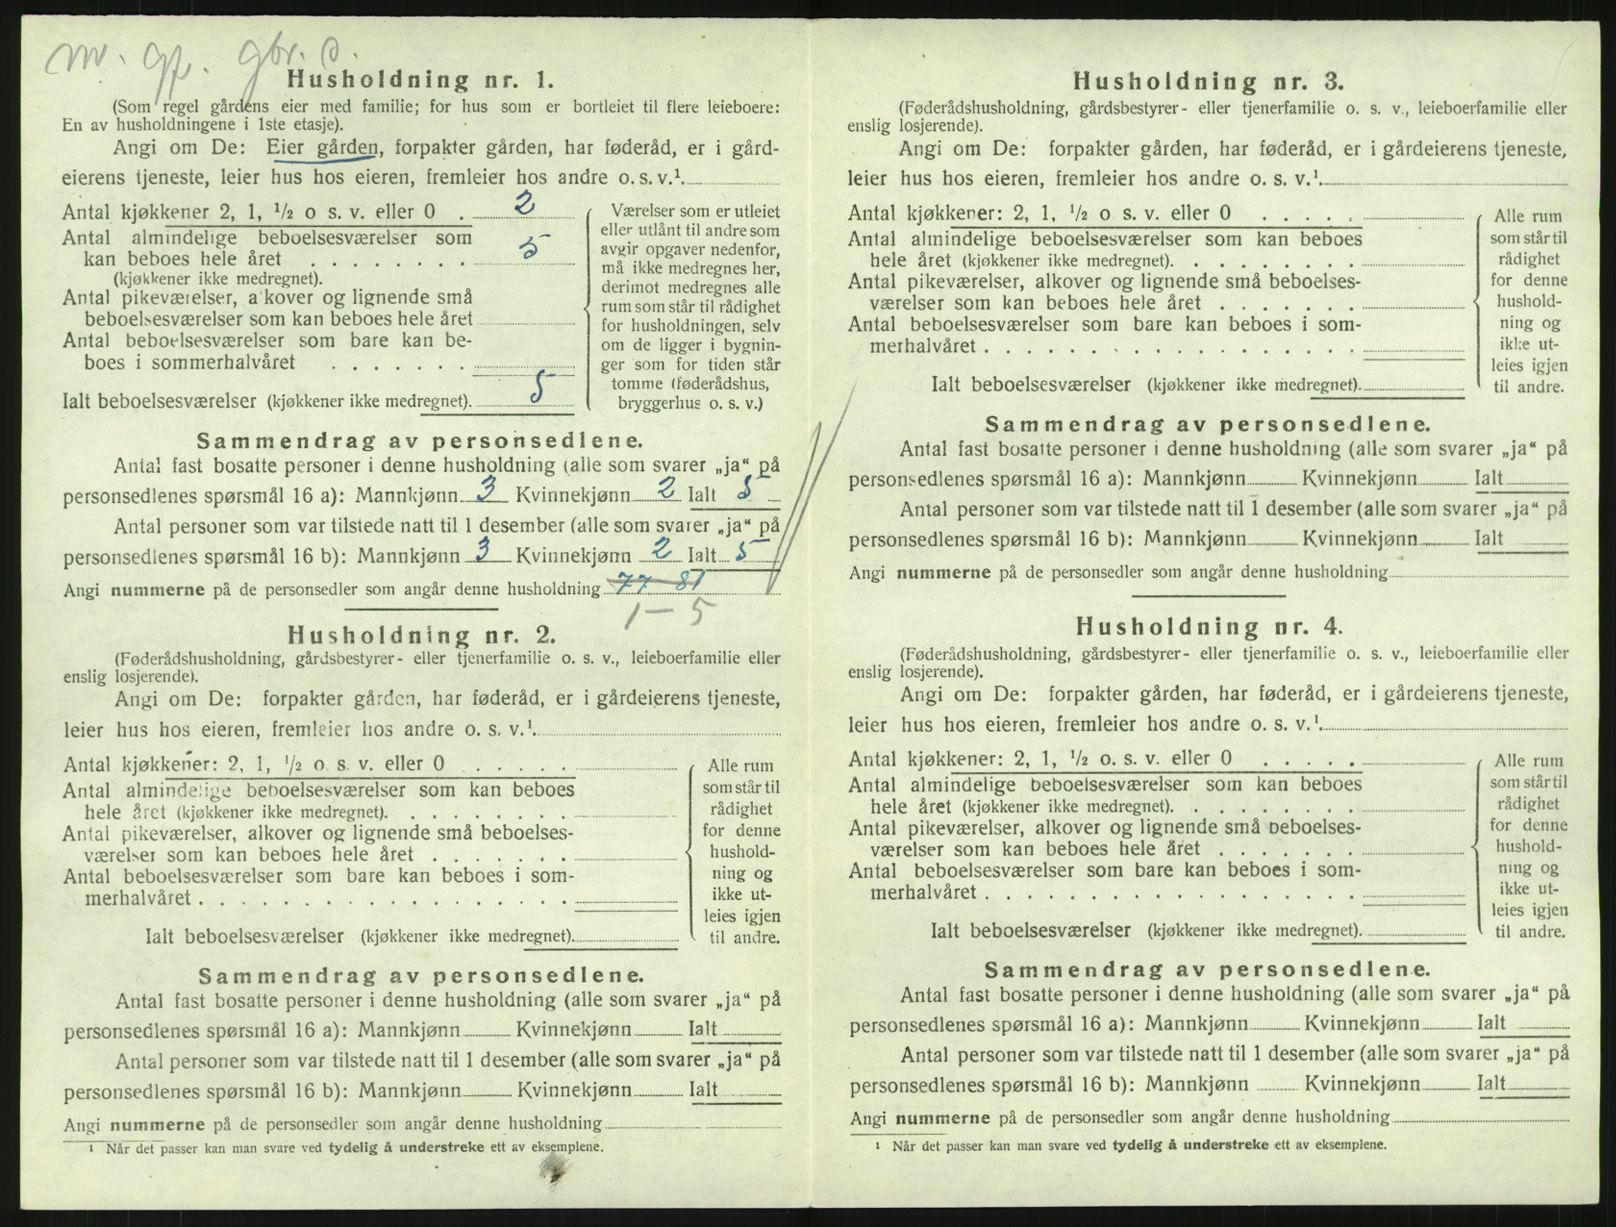 Husholdning nr. 1.
(Som regel gårdens eier med familie; for hus som er bortleiet til flere leieboere:
En av husholdningene i 1ste etasje).
Angi om De: Eier gården, forpakter gården, har føderåd, er i gård-
eierens tjeneste, leier hus hos eieren, fremleier hos andre o. s. v.¹.
Antal kjøkkener 2, 1, ½ o s. v. eller 0 . 2
Antal almindelige beboelsesværelser som
kan beboes hele året . . . . . . . . 5
(kjøkkener ikke medregnet).
Antal pikeværelser, a kover og lignende små
beboelsesværelser som kan beboes hele året
Antal beboelsesværelser som bare kan be-
boes i sommerhalvåret . . . . . . .
Ialt beboelsesværelser (kjøkkener ikke medregnet). 5
Værelser som er utleiet
eller utlånt til andre som
avgir opgaver nedenfor,
må ikke medregnes her,
derimot medregnes alle
rum som står til rådighet
for husholdningen, selv
om de ligger i bygnin-
ger som for tiden står
tomme (føderådshus,
bryggerhus o. s. v.)
Sammendrag av personsedlene.
Antal fast bosatte personer i denne husholdning (alle som svarer „ja“ på
personsedlenes spørsmål 16 a): Mannkjønn 3 Kvinnekjønn 2 Ialt 5
Antal personer som var tilstede natt til 1 desember (alle som svarer „ja“ på
personsedlenes spørsmål 16 b): Mannkjønn 3 Kvinnekjønn 2 Ialt 5
Angi nummerne på de personsedler som angår denne husholdning 77-81
1-5
Husholdning nr. 2.
(Føderådshusholdning, gårdsbestyrer- eller tjenerfamilie o. s. v., leieboerfamilie eller
enslig losjerende).
Angi om De: forpakter gården, har føderåd, er i gårdeierens tjeneste,
leier hus hos eieren, fremleier hos andre o. s. v.¹.
Antal kjøkkener: 2, 1, ½ o. s. v. eller 0 . . . . .
Antal almindelige beboelsesværelser som kan beboes
hele året (kjøkkener ikke medregnet). . . . . . . . .
Antal pikeværelser, alkover og lignende små beboelses-
værelser som kan beboes hele året . . . . . . .
Antal beboelsesværelser som bare kan beboes i som-
merhalvåret . . . . . . . . . . . . . . . . . .
Ialt beboelsesværelser (kjøkkener ikke medregnet).
Alle rum
som står til
rådighet
for denne
hushold-
ning og
ikke ut-
leies igjen
til andre.
Sammendrag av personsedlene.
Antal fast bosatte personer i denne husholdning (alle som svarer „ja“ på
personsedlenes spørsmål 16 a): Mannkjønn Kvinnekjønn Ialt
Antal personer som var tilstede natt til 1 desember (alle som svarer „ja“ på
personsedlenes spørsmål 16 b): Mannkjønn Kvinnekjønn Ialt
Angi nummerne på de personsedler som angår denne husholdning
¹ Når det passer kan man svare ved tydelig å understreke ett av eksemplene.
Husholdning nr. 3.
(Føderådshusholdning, gårdsbestyrer- eller tjenerfamilie o. s. v., leieboerfamilie eller
enslig losjerende).
Angi om De: forpakter gården, har føderåd, er i gårdeierens tjeneste,
leier hus hos eieren, fremleier hos andre o. s. v.¹.
Antal kjøkkener: 2, 1, ½ o s. v. eller 0 . . . . .
Antal almindelige beboelsesværelser som kan beboes
hele året (kjøkkener ikke medregnet). . . . . . . . .
Antal pikeværelser, alkover og lignende små beboelses-
værelser som kan beboes hele året . . . . . . .
Antal beboelsesværelser som bare kan beboes i som-
merhalvåret . . . . . . . . . . . . . . . . . .
Ialt beboelsesværelser (kjøkkener ikke medregnet).
Alle rum
som står til
rådighet
for denne
hushold-
ning og
ikke ut-
leies igjen
til andre.
Sammendrag av personsedlene.
Antal fast bosatte personer i denne husholdning (alle som svarer „ja“ på
personsedlenes spørsmål 16 a): Mannkjønn Kvinnekjønn Ialt
Antal personer som var tilstede natt til 1 desember (alle som svarer „ja“ på
personsedlenes spørsmål 16 b): Mannkjønn Kvinnekjønn Ialt
Angi nummerne på de personsedler som angår denne husholdning
Husholdning nr. 4.
(Føderådshusholdning, gårdsbestyrer- eller tjenerfamilie o. s. v., leieboerfamilie eller
enslig losjerende).
Angi om De: forpakter gården, har føderåd, er i gårdeierens tjeneste,
leier hus hos eieren, fremleier hos andre o. s. v.¹.
Antal kjøkkener: 2, 1, ½ o. s. v. eller 0 . . . . .
Antal almindelige beboelsesværelser som kan beboes
hele året (kjøkkener ikke medregnet). . . . . . . . .
Antal pikeværelser, alkover og lignende små beboelses-
værelser som kan beboes hele året . . . . . . .
Antal beboelsesværelser som bare kan beboes i som-
merhalvåret . . . . . . . . . . . . . . . . . .
Ialt beboelsesværelser (kjøkkener ikke medregnet).
Alle rum
som står til
rådighet
for denne
hushold-
ning og
ikke ut-
leies igjen
til andre.
Sammendrag av personsedlene.
Antal fast bosatte personer i denne husholdning (alle som svarer „ja“ på
personsedlenes spørsmål 16 a): Mannkjønn Kvinnekjønn Ialt
Antal personer som var tilstede natt til 1 desember (alle som svarer „ja“ på
personsedlenes spørsmål 16 b): Mannkjønn Kvinnekjønn Ialt
Angi nummerne på de personsedler som angår denne husholdning
¹ Når det passer kan man svare ved tydelig å understreke ett av eksemplene.